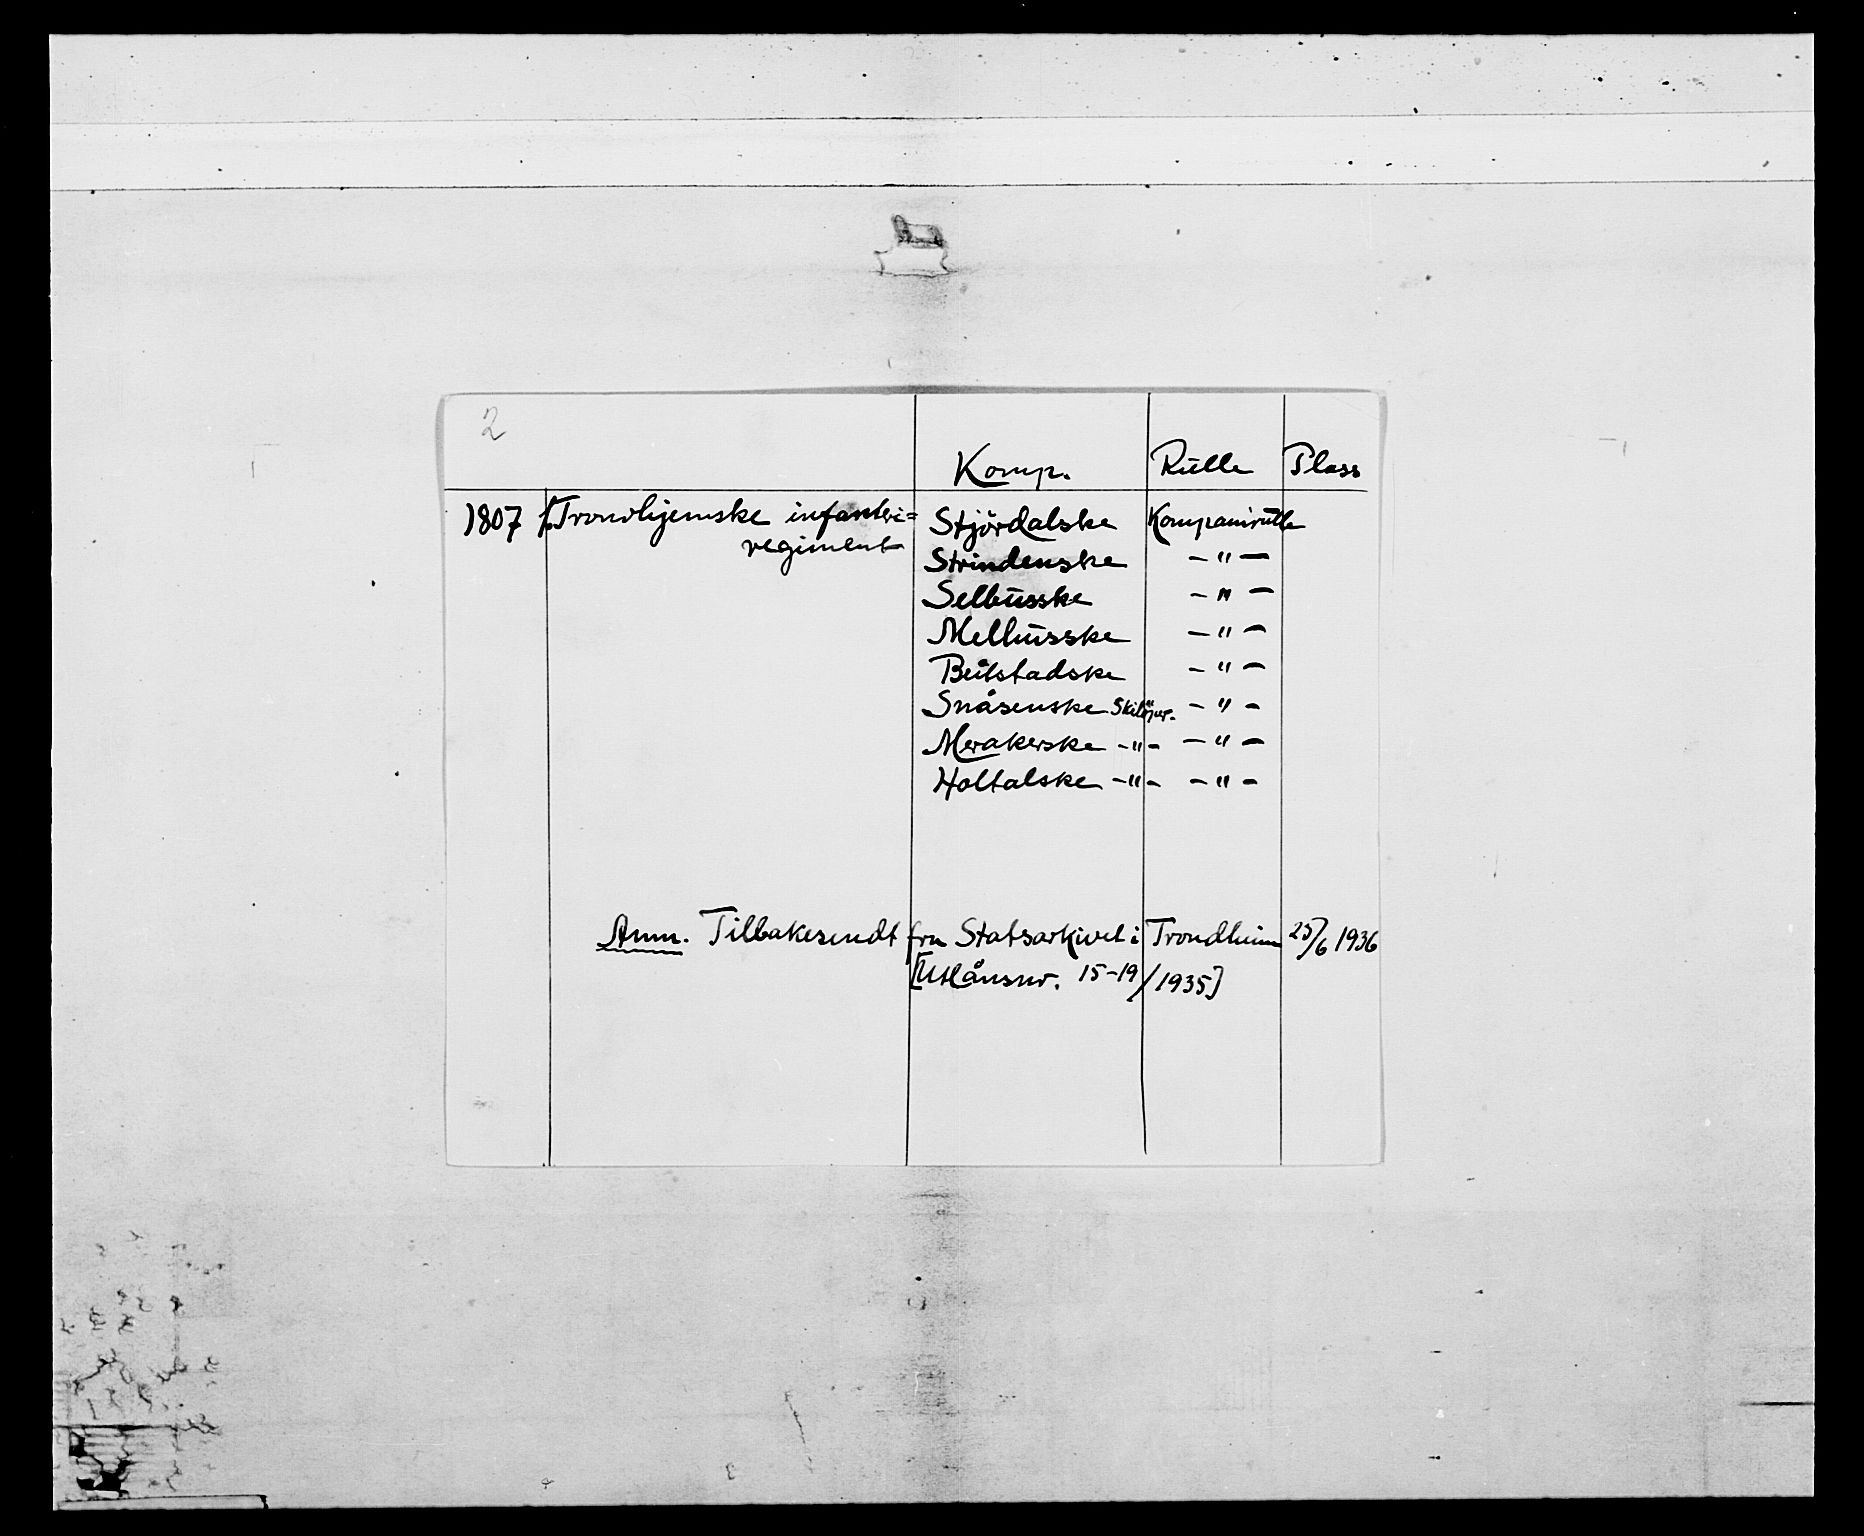 2
Komp. Rulle Plass
1807 1. Trondhjemske infanteri= Stjördalske Kompanirulle
regiment
Strindenske - " -
Selbusske - " -
Melhusske - " -
Beitstadske - " -
Snåsenske Skilöper. - " -
Merakerske - " - - " -
Holtalske - " - - " -
Anm. Tilbakesendt fra Statsarkivet i Trondheim 25/6 1936
[Utlånsnr. 15-19/1935]